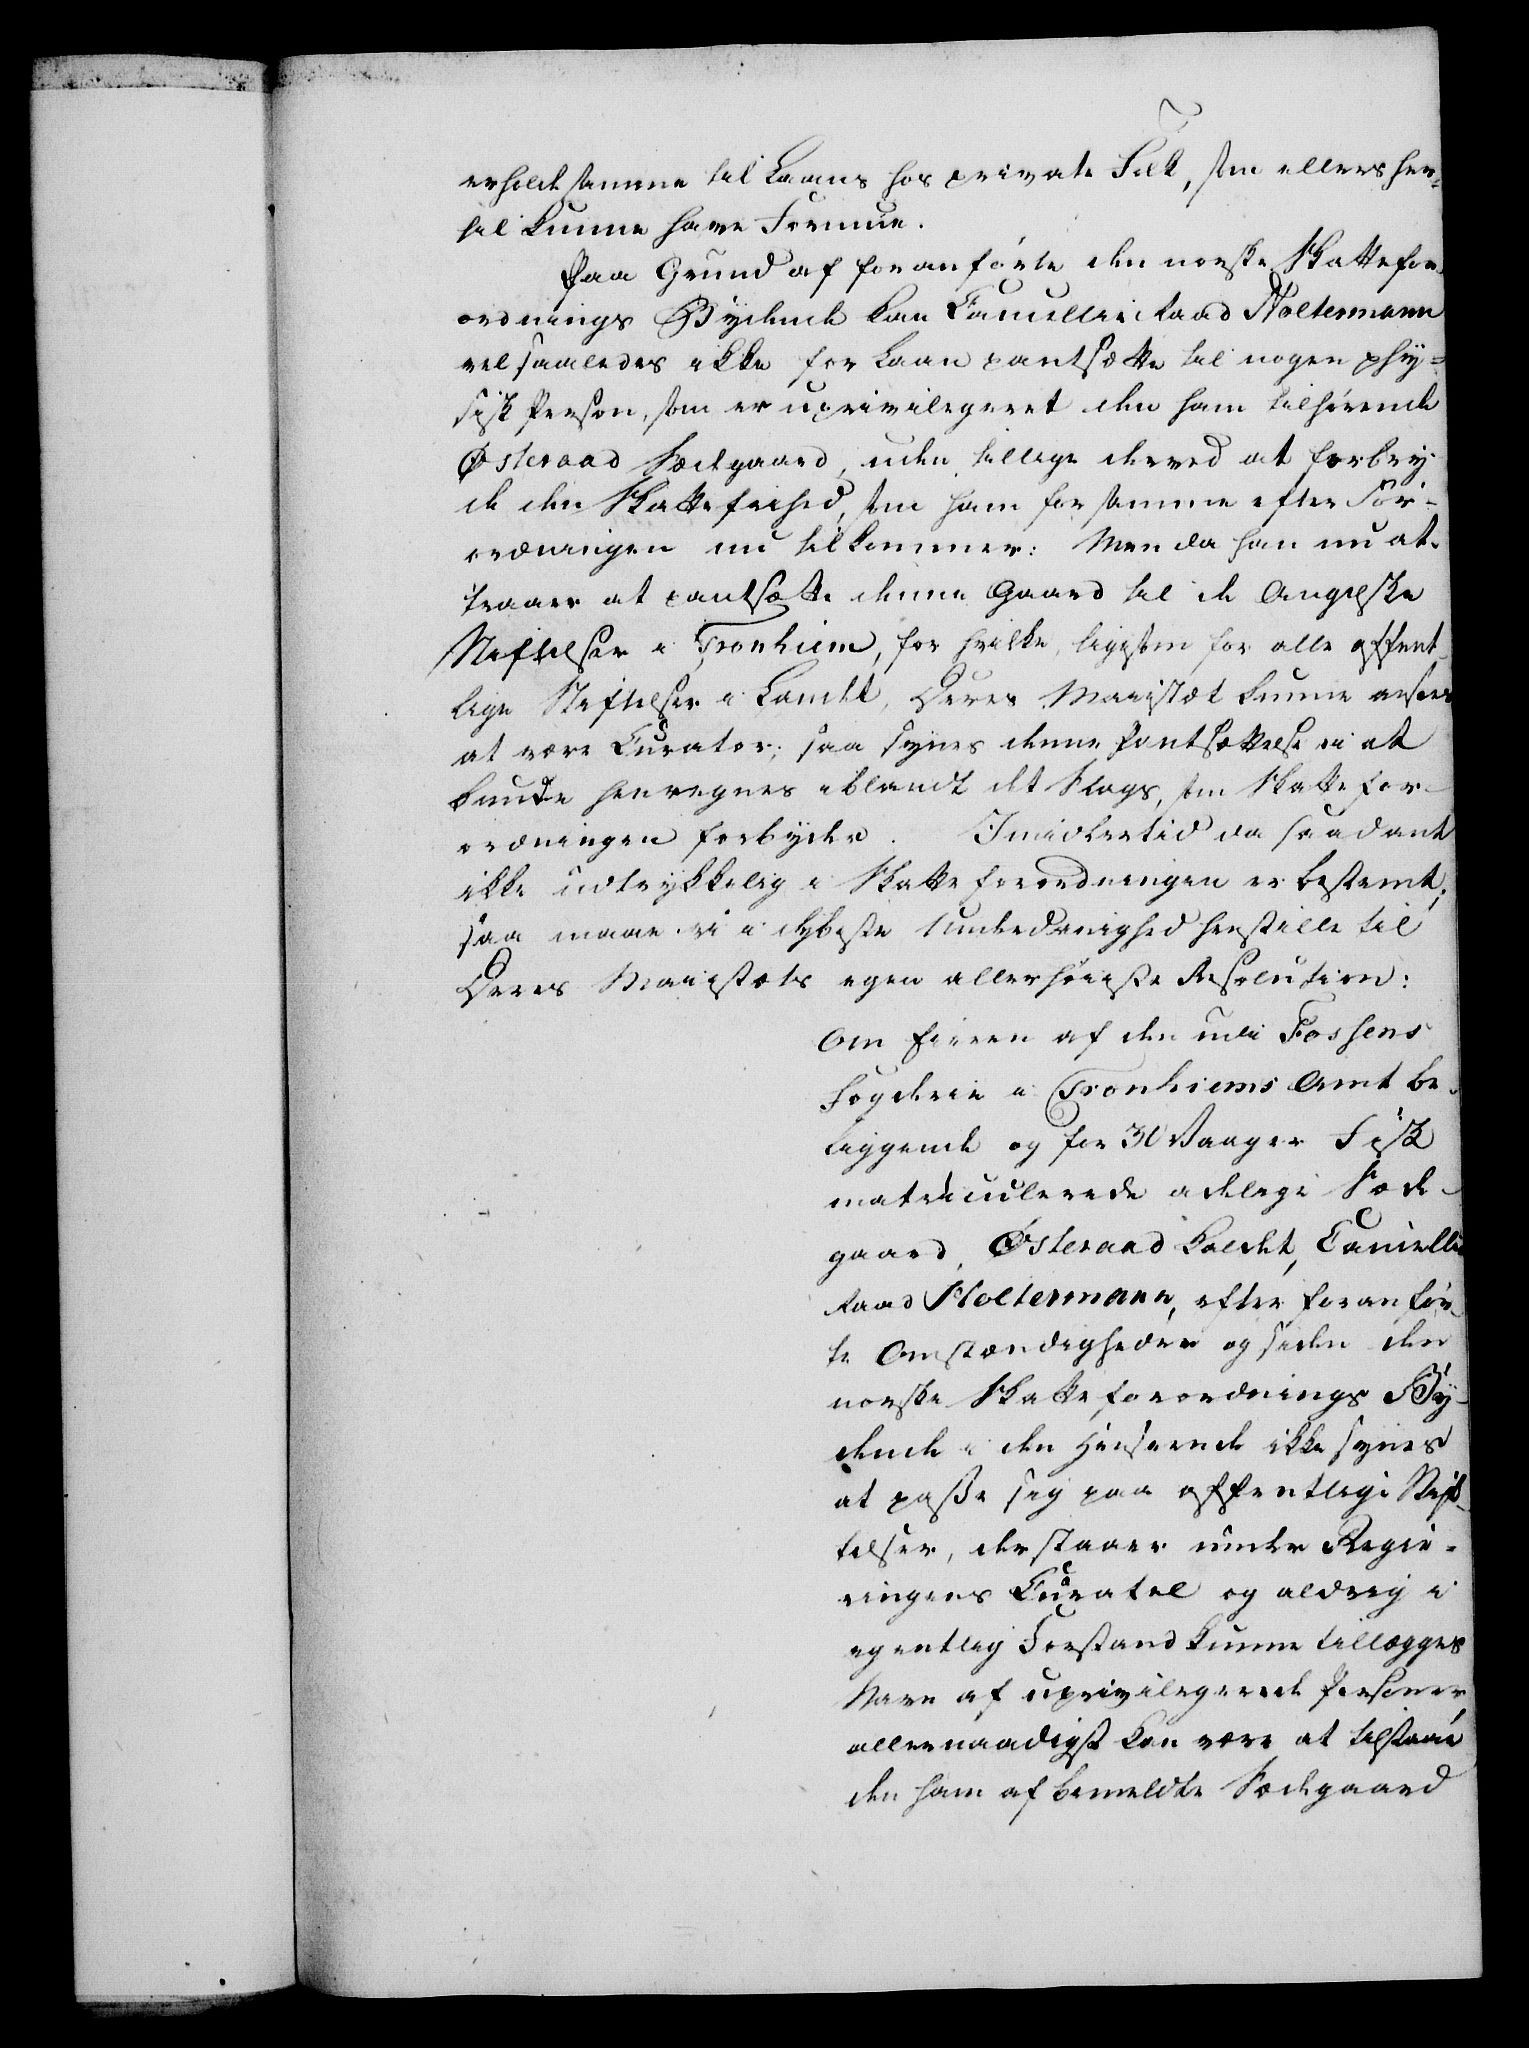 erholde samme til Laans hos private Folk, som ellers her-
til kunne have Formue.
Paa Grund af foranførte den norske Skattefor-
ordnings Bydende kan Cancellieraad Holtermann
vel saaledes ikke for Laan pantsætte til nogen phy-
sisk Person, som er uprivilegeret den ham tilhørende
Østeraad Sædegaard, uden tillige derved at forbry-
de den Skattefrihed, som ham for samme efter For-
ordningen nu tilkommer: Men da han nu at-
traaer at pantsætte denne Gaard til de Angelske
Stiftelser i Tronhiem, for hvilke, ligesom for alle offent-
lige Stiftelser i Landet, Deres Maiestæt kunne ansees
at være Curator; saa synes denne Pantsættelse ei at
burde henregnes iblandt det Slags, som Skattefor-
ordningen forbyder. Imidlertid da saadant
ikke udtrykkelig i Skatteforordningen er bestemt;
saa maae vi i dybeste Underdanighed henstille til
Deres Maiestæts egen allerhøieste Resolution:
Om Eieren af den udi Fossens
Fogderie i Tronhiems Amt be-
liggende og for 30 Vaager Fisk
matriculerede adelige Sæde-
gaard, Østeraad kaldet, Cancellie
raad Holtermann, efter foranfør-
te Omstændigheder og siden den
norske Skatteforordnings By-
dende i den Henseende ikke synes
at passe sig paa offentlige Stif-
telser, der staaer under Regie-
ringens Curatel og aldrig i
egentlig Forstand kunne tillægges
Navn af uprivilegerede Personer
allernaadigst kan være at tilstaae
den ham af bemeldte Sædegaard